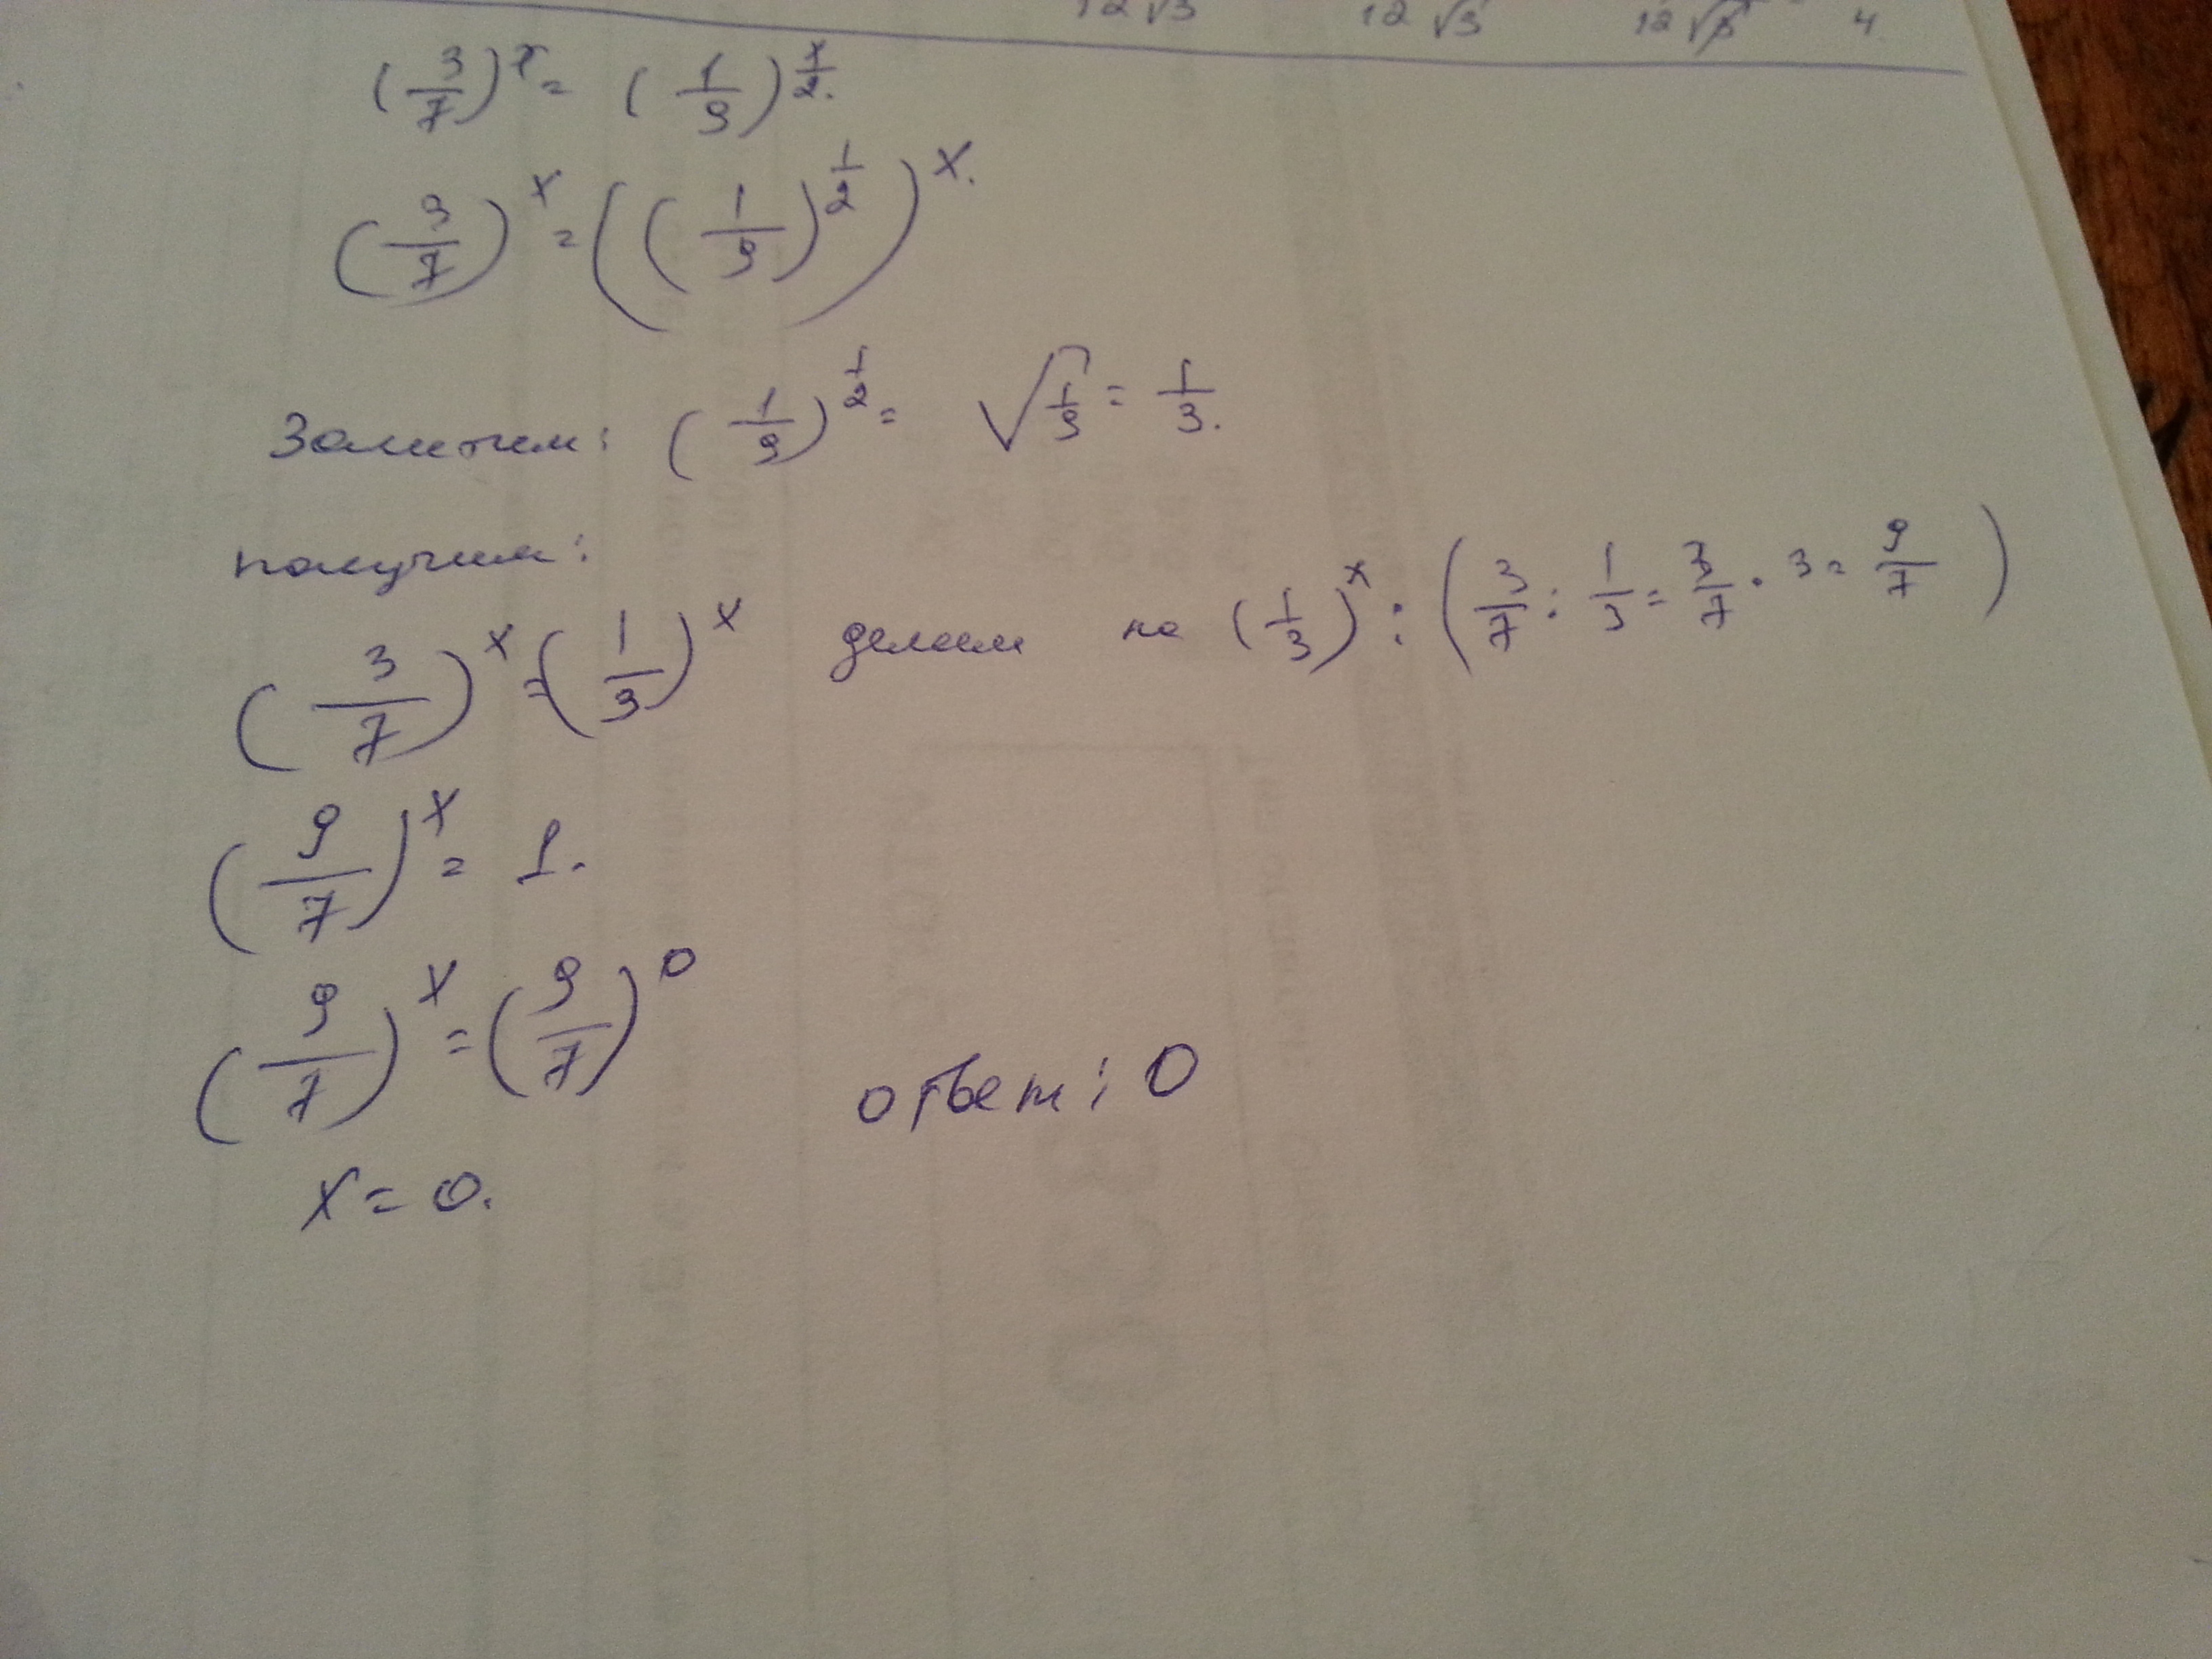 12√3 12√3 12√3 4
(3/7)^x = (1/9)^(x/2).
(3/7)^x = ((1/9)^(1/2))^x.
Заметим: (1/9)^(1/2) = √(1/9) = 1/3.
получим:
(3/7)^x = (1/3)^x делим на (1/3)^x: (3/7 : 1/3 = 3/7 · 3 = 9/7)
(9/7)^x = 1.
(9/7)^x = (9/7)^0
ответ: 0
x = 0.